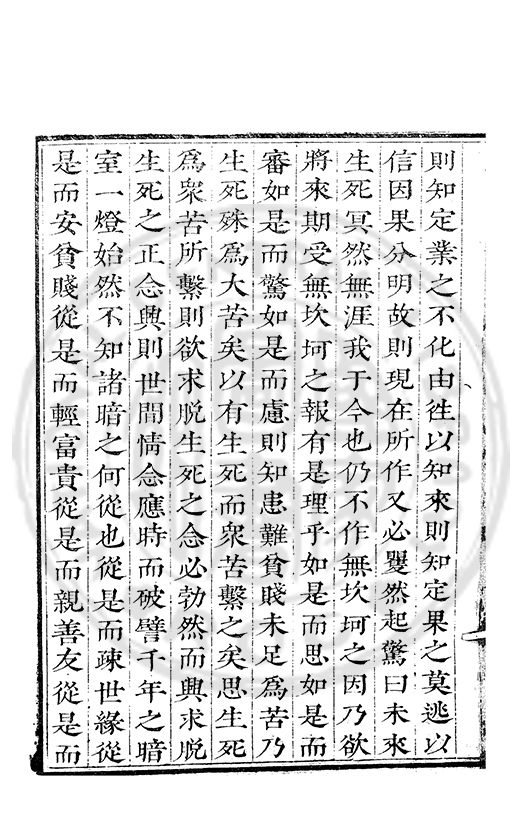 則知定業之不化由徃以知來則知定果之莫逃以
信因果分明故則現在所作又必矍然起驚曰未來
生死冥然無涯我于今也仍不作無坎坷之因乃欲
將來期受無坎坷之報有是理乎如是而思如是而
審如是而驚如是而慮則知患難貧賤未足爲苦乃
生死殊爲大苦矣以有生死而衆苦繫之矣思生死
爲衆苦所繫則欲求脫生死之念必勃然而興求脫
生死之正念興則世間情念應時而破譬千年之暗
室一燈始然不知諸暗之何從也從是而疎世緣從
是而安貧賤從是而輕富貴從是而親善友從是而